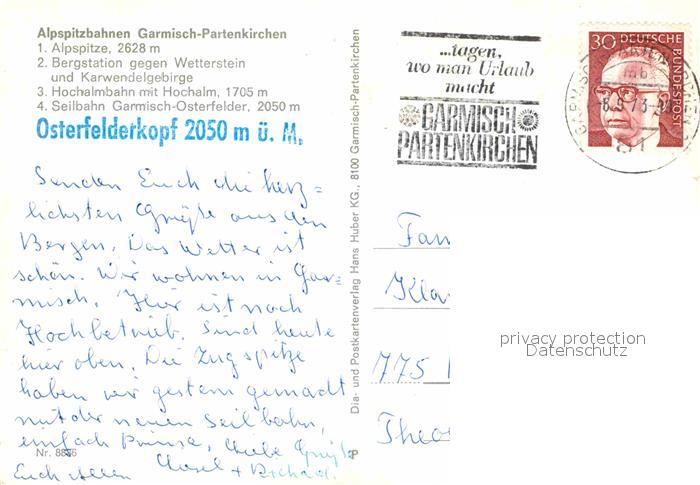 Alpspitzbahnen Garmisch-Partenkirchen
1. Alpspitze, 2628 m
2. Bergstation gegen Wetterstein
und Karwendelgebirge
3. Hochalmbahn mit Hochalm, 1705 m
4. Seilbahn Garmisch-Osterfelder, 2050 m
Osterfelderkopf 2050 m ü. M.
Senden Euch die herz=
lichsten Grüße aus den
Bergen. Das Wetter ist
schön. Wir wohnen in Gar=
misch. Hier ist noch
Hochbetrieb. Sind heute
hier oben. Die Zugspitze
haben wir gestern gemacht
mit der neuen Seilbahn,
einfach prima, Liebe Grüße
Euch allen
+ Richard.
Nr. 8836
Dia- und Postkartenverlag Hans Huber KG., 8100 Garmisch-Partenkirchen
...tagen,
wo man Urlaub
macht
GARMISCH
PARTENKIRCHEN
30 DEUTSCHE
BUNDESPOST
Fam
Kla
775
Theo
privacy protection
Datenschutz